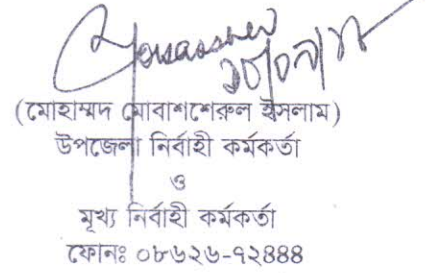 (মোহাম্মদ মোবাশশেরুল ইসলাম)
উপজেলা নির্বাহী কর্মকর্তা
ও
মূখ্য নির্বাহী কর্মকর্তা
ফোনঃ ০৮৬২৬-৭২৪৪৪